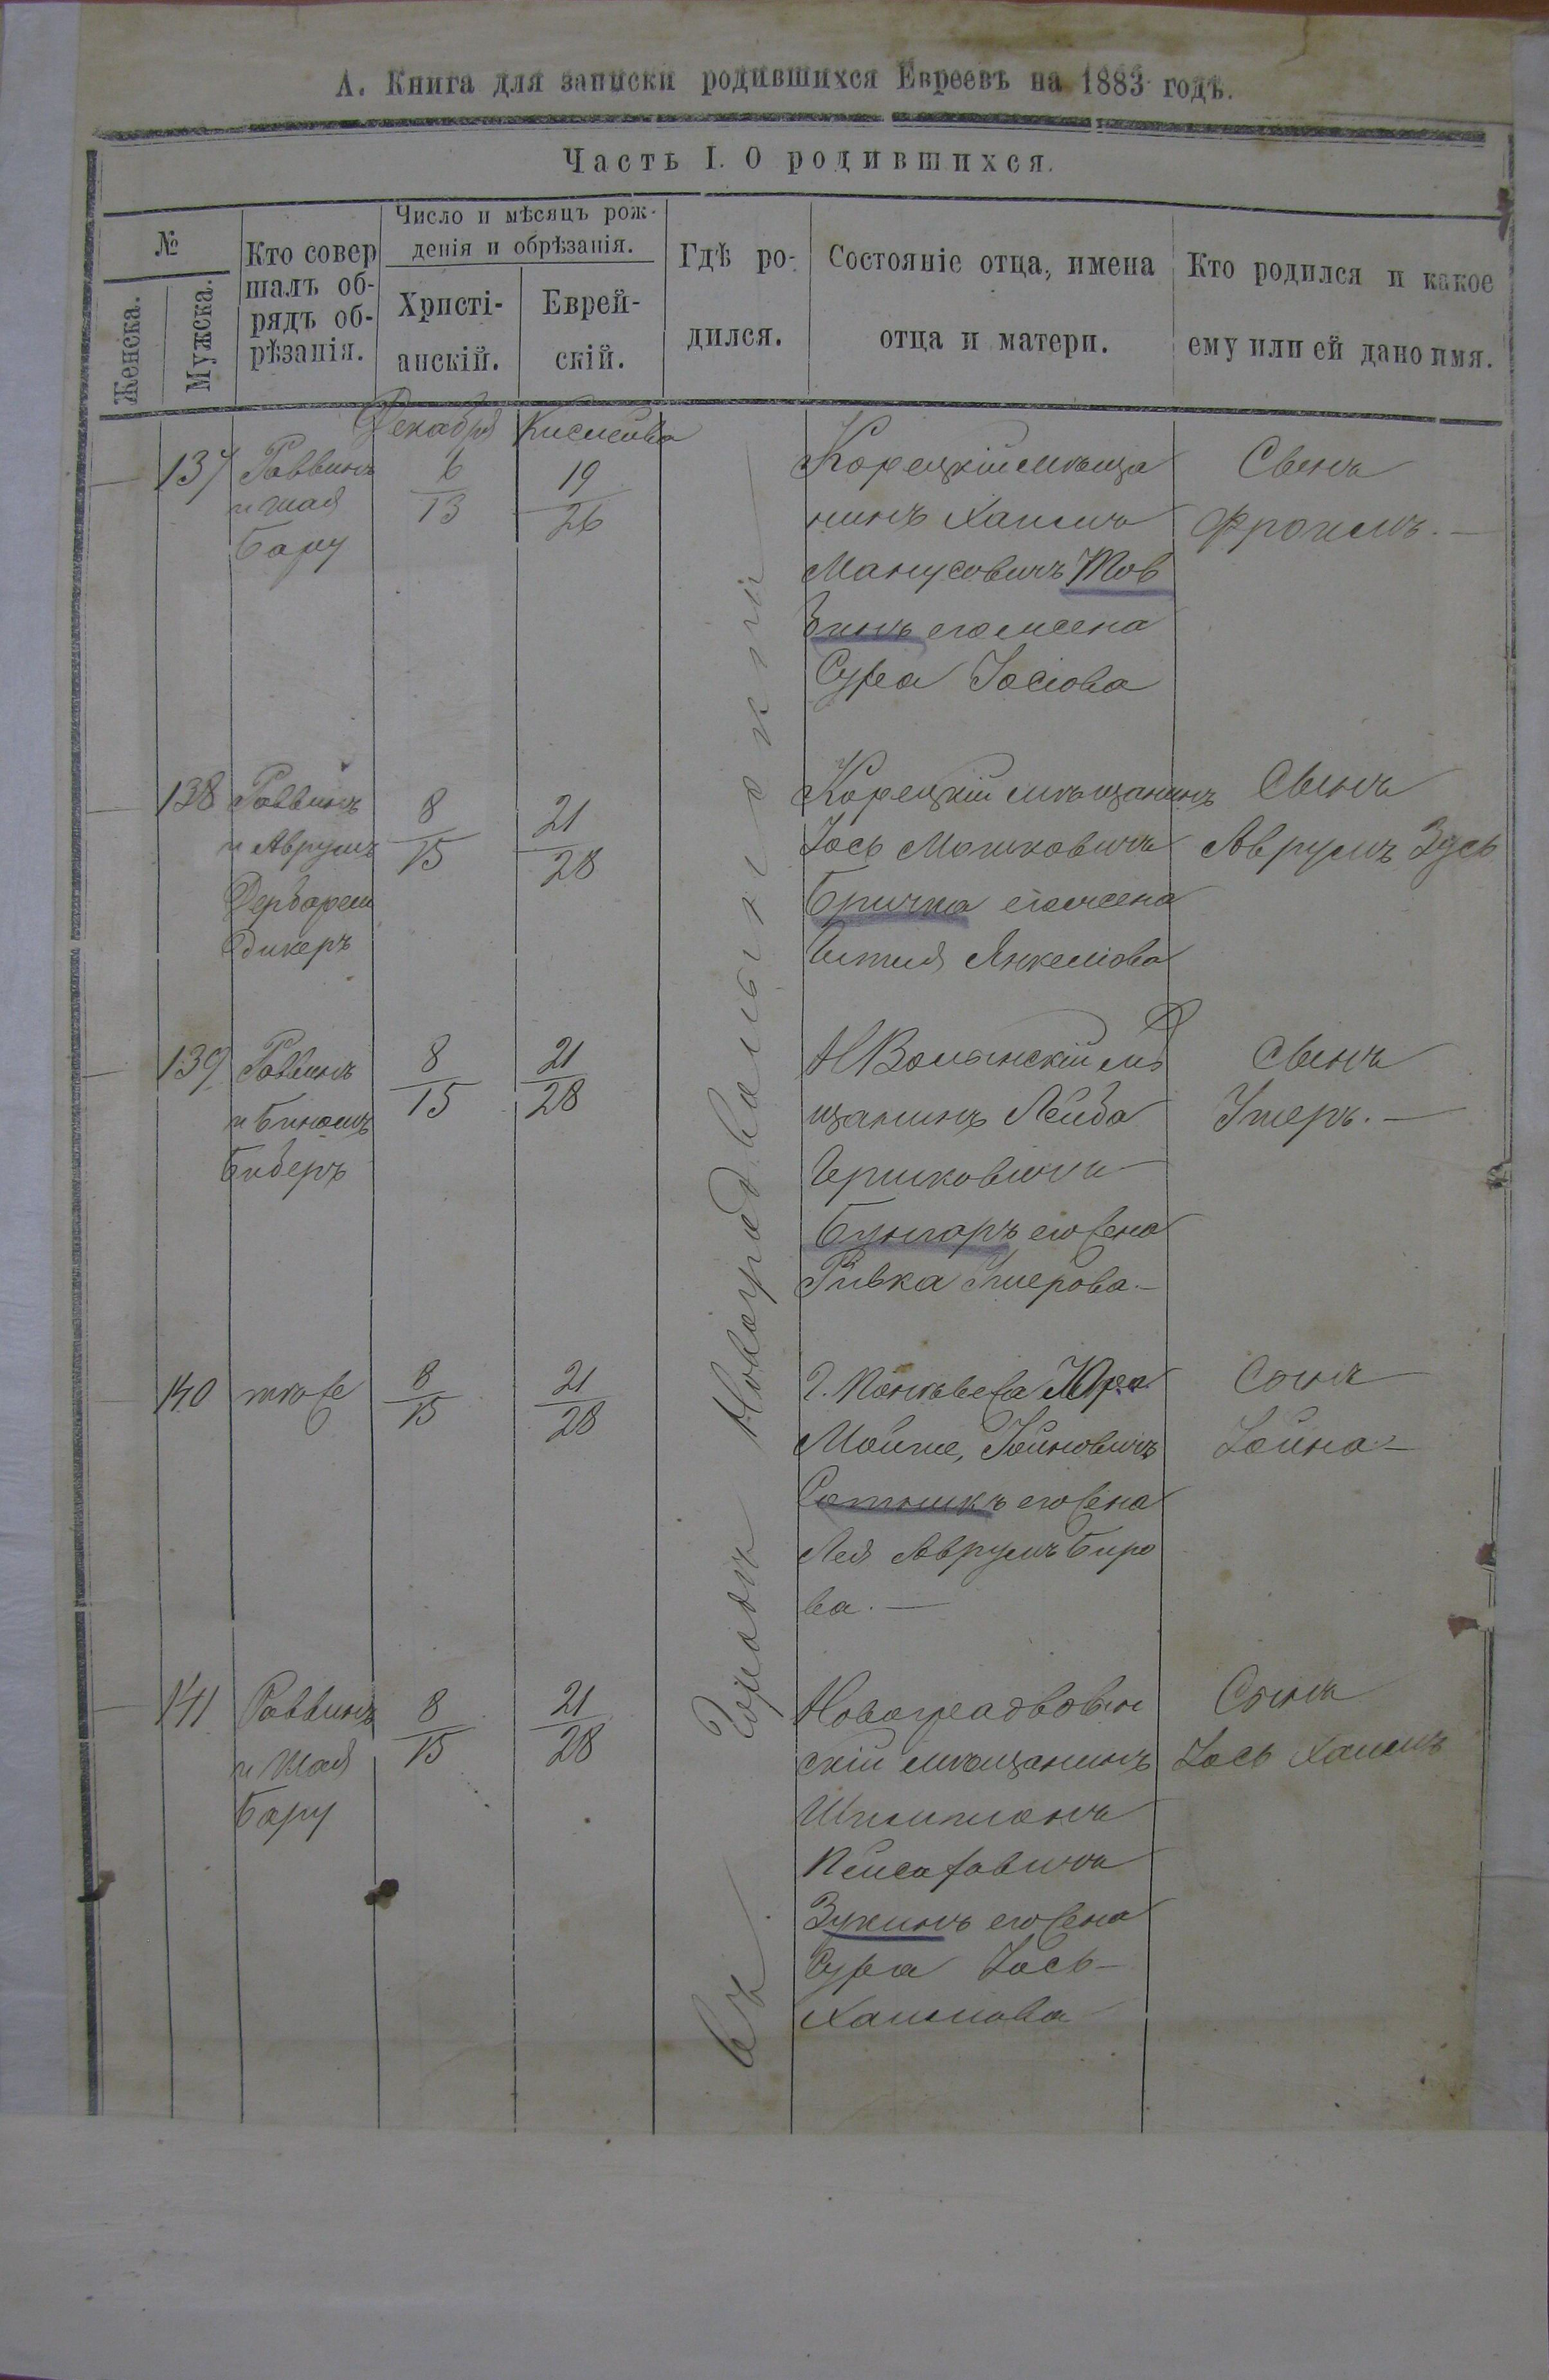 А. Книга для записки родившихся Евреевъ на 1883 годъ.
Часть I. О родившихся.
№
Женска.
Мужска.
Кто совер
шалъ об-
рядъ об-
рѣзанія.
Число и мѣсяцъ рож-
денія и обрѣзанія.
Христі-
анскій.
Еврей-
скій.
Гдѣ ро-
дился.
Состояніе отца, имена
отца и матери.
Кто родился и какое
ему или ей дано имя.
Декабря
Кислева
Въ городѣ Новоградволынскѣ
137
Раввинъ
и Шая
Бару
6
13
19
26
Корецкій мѣща
нинъ Хаимъ
Манусовичъ Тов
бинъ его жена
Сура Іосіова
Сынъ
Фроимъ. —
138
Раввинъ
и Аврумъ
Дербарем
дикеръ
8
15
21
28
Корецкій мѣщанинъ
Іось Мошковичъ
Бричка его жена
Гитля Янкеліова
Сынъ
Аврумъ Зусь
139
Раввинъ
и Биномъ
Биберъ
8
15
21
28
НВолынскій мѣ
щанинъ Лейба
Гершковичъ
Бунгаръ его жена
Ривка Ушерова. —
Сынъ
Ушеръ. —
140
тоже
8
15
21
28
Мойше, Іойновичъ
Сотникъ его жена
Лея Аврумъ Биро
ва. —
Сынъ
Іойна —
141
Раввинъ
и Шая
Бару
8
15
21
28
Новоградволын
скій мѣщанинъ
Пейсаховичъ
Зукинъ его жена
Сура Іось —
Хаимова
Сынъ
Іось Хаимъ